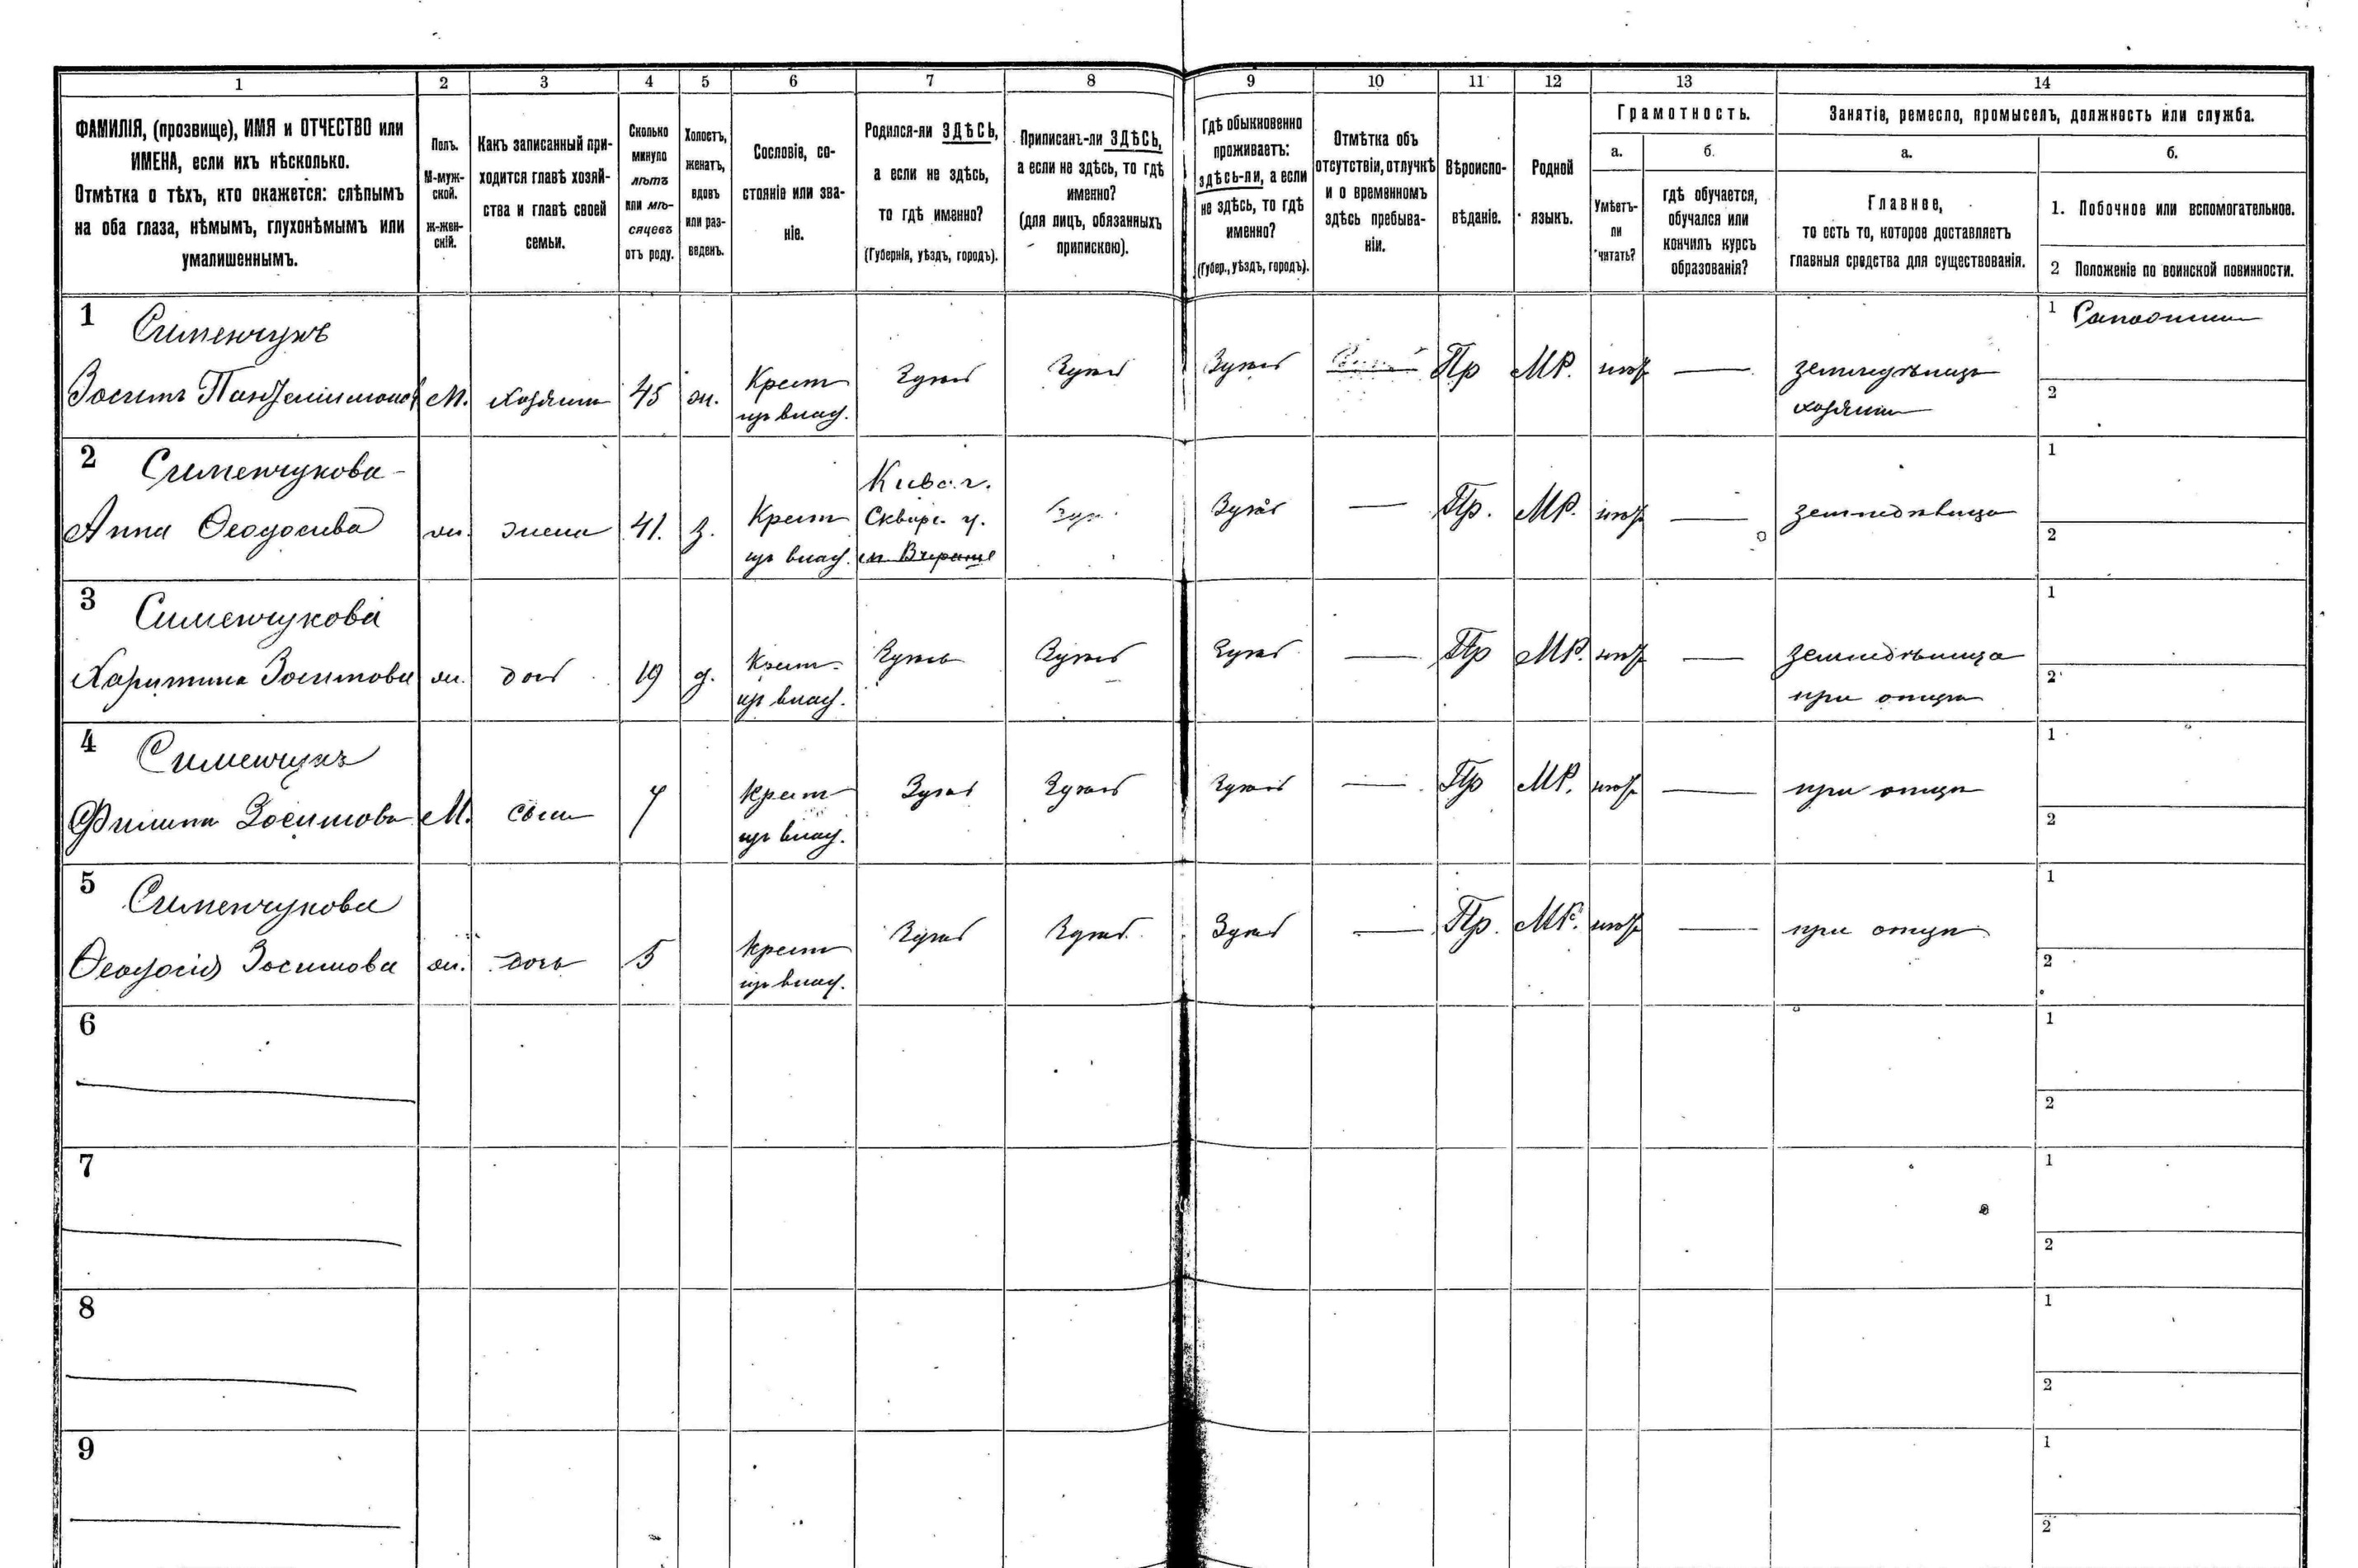 1 2 3 4 5 6 7 8 9 10 11 12 13 14
ФАМИЛІЯ, (прозвище), ИМЯ и ОТЧЕСТВО или
ИМЕНА, если ихъ нѣсколько.
Отмѣтка о тѣхъ, кто окажется: слѣпымъ
на оба глаза, нѣмымъ, глухонѣмымъ или
умалишеннымъ.
Полъ.
М-муж-
ской.
ж-жен-
скій.
Какъ записанный при-
ходится главѣ хозяй-
ства и главѣ своей
семьи.
Сколько
минуло
лѣтъ
или мѣ-
сяцевъ
отъ роду.
Холостъ,
женатъ,
вдовъ
или раз-
веденъ.
Сословіе, со-
стояніе или зва-
ніе.
Родился-ли ЗДѢСЬ,
а если не здѣсь,
то гдѣ именно?
(Губернія, уѣздъ, городъ).
Приписанъ-ли ЗДѢСЬ,
а если не здѣсь, то гдѣ
именно?
(для лицъ, обязанныхъ
припискою).
Гдѣ обыкновенно
проживаетъ:
здѣсь-ли, а если
не здѣсь, то гдѣ
именно?
(Губер., уѣздъ, городъ).
Отмѣтка объ
отсутствіи, отлучкѣ
и о временномъ
здѣсь пребыва-
ніи.
Вѣроиспо-
вѣданіе.
Родной
языкъ.
Грамотность.
а.
Умѣетъ-
ли
читать?
б.
гдѣ обучается,
обучался или
кончилъ курсъ
образованія?
Занятіе, ремесло, промыселъ, должность или служба.
а.
Главное,
то есть то, которое доставляетъ
главныя средства для существованія.
б.
1. Побочное или вспомогательное.
2 Положеніе по воинской повинности.
1 Сименчукъ
Зосимъ Пантелимоновъ М. хозяинъ 45 ж. Крест
изъ влад. Здѣсь Здѣсь Здѣсь Пр МР. нѣтъ — земледѣлецъ
хозяинъ
1
2
2 Сименчукова
Анна Ѳеодосіева ж. жена 41. з. Крест
из влад. Киев. г.
Сквирс. у.
Здѣсь — Пр. МР. нѣтъ — земледѣлица
1
2
3 Сименчукова
Харитина Зосимова ж. доч 19 д. Крест.
из влад. Здѣсь Здѣсь Здѣсь — Пр МР. нѣтъ — земледѣлица
при отцѣ
1
2
4 Сименчукъ
Филиппъ Зосимовъ М. сынъ 7 Крест
из влад. Здѣсь Здѣсь Здѣсь — Пр МР. нѣтъ — при отцѣ
1
2
5 Сименчукова
Ѳеодосія Зосимова ж. дочь 5 Крест
из влад. Здѣсь Здѣсь Здѣсь — Пр. МР. нѣтъ — при отцѣ
1
2
6
1
2
7
1
2
8
1
2
9
1
2